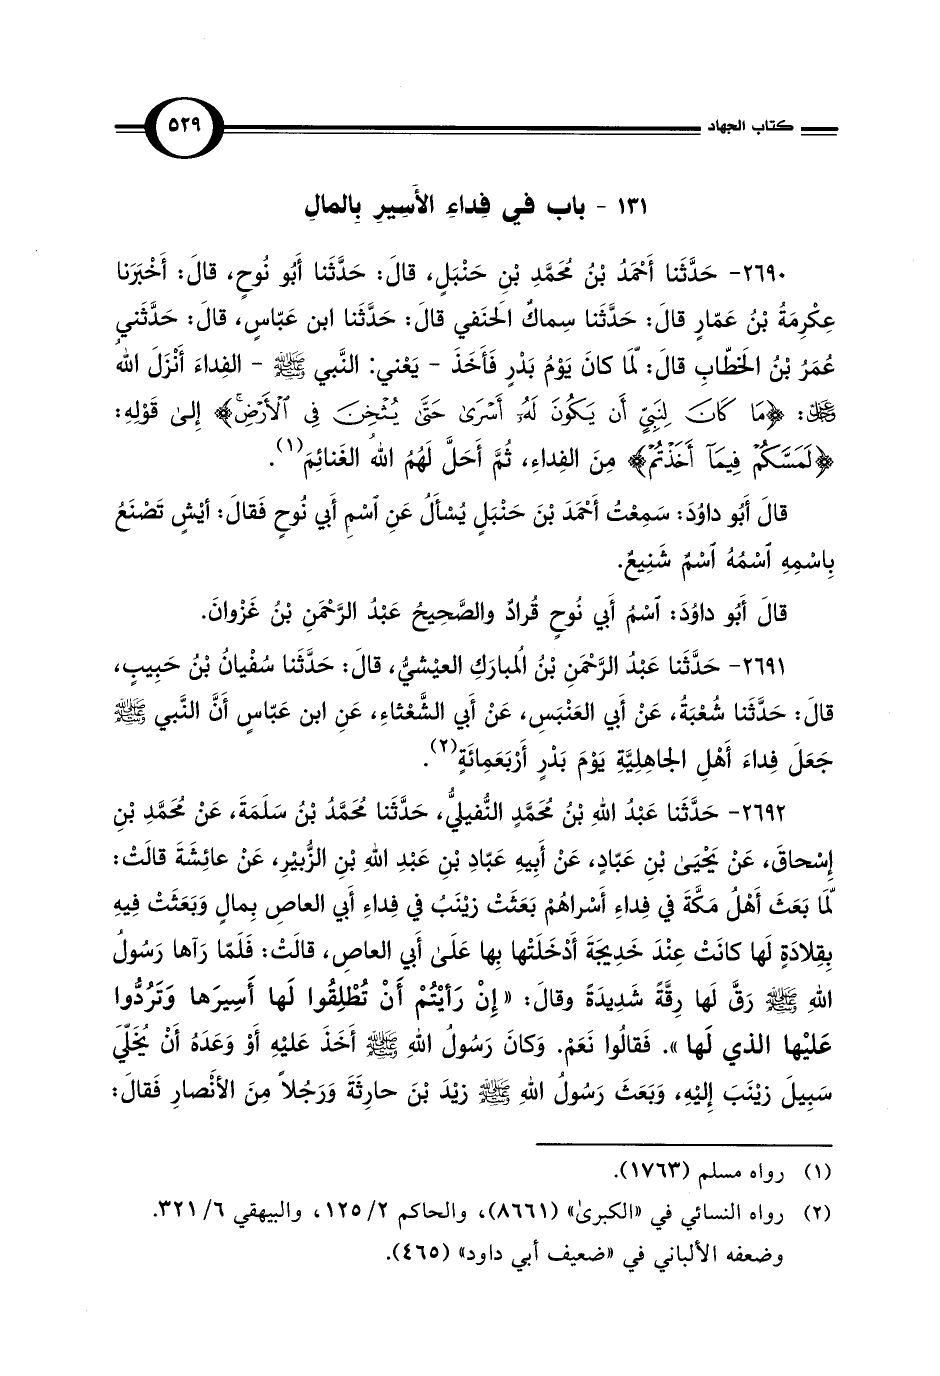 كتاب الجهاد ٥٢٩
١٣١ - باب في فِداءِ الأَسِيرِ بِالمالِ
٢٦٩٠- حَدَّثَنا أَحْمَدُ بْنُ مُحَمَّدِ بْنِ حَنْبَلٍ، قالَ: حَدَّثَنا أَبُو نُوحٍ، قالَ: أَخْبَرَنا
عِكْرِمَةُ بْنُ عَمّارٍ قالَ: حَدَّثَنا سِماكٌ الحَنَفي قالَ: حَدَّثَنا ابن عَبّاسٍ، قالَ: حَدَّثَني
عُمَرُ بْنُ الخَطّابِ قالَ: لَمّا كانَ يَوْمُ بَدْرٍ فَأَخَذَ - يَعْني: النَّبي ﷺ - الفِداءَ أَنْزَلَ اللهُ
ﷻ: ﴿مَا كَانَ لِنَبِيٍّ أَن يَكُونَ لَهُۥٓ أَسْرَىٰ حَتَّىٰ يُثْخِنَ فِي ٱلْأَرْضِ﴾ إِلىٰ قَوْلِهِ:
﴿لَمَسَّكُمْ فِيمَآ أَخَذْتُمْ﴾ مِنَ الفِداءِ، ثُمَّ أَحَلَّ لَهُمُ اللهُ الغَنائِمَ(١).
قالَ أَبُو داوُدَ: سَمِعْتُ أَحْمَدَ بْنَ حَنْبَلٍ يُسْأَلُ عَنِ ٱسْمِ أَبي نُوحٍ فَقالَ: أيْشٍ تَصْنَعُ
بِاسْمِهِ ٱسْمُهُ ٱسْمٌ شَنِيعٌ.
قالَ أَبُو داوُدَ: ٱسْمُ أَبي نُوحٍ قُرادٌ والصَّحِيحُ عَبْدُ الرَّحْمَنِ بْنُ غَزْوانَ.
٢٦٩١- حَدَّثَنا عَبْدُ الرَّحْمَنِ بْنُ المُبارَكِ العَيْشيُّ، قالَ: حَدَّثَنا سُفْيانُ بْنُ حَبِيبٍ،
قالَ: حَدَّثَنا شُعْبَةُ، عَنْ أَبي العَنْبَسِ، عَنْ أَبي الشَّعْثاءِ، عَنِ ابن عَبّاسٍ أَنَّ النَّبي ﷺ
جَعَلَ فِداءَ أَهْلِ الجاهِلِيَّةِ يَوْمَ بَدْرٍ أَرْبَعَمِائَةٍ(٢).
٢٦٩٢- حَدَّثَنا عَبْدُ اللهِ بْنُ مُحَمَّدٍ النُّفَيليُّ، حَدَّثَنا مُحَمَّدُ بْنُ سَلَمَةَ، عَنْ مُحَمَّدِ بْنِ
إِسْحاقَ، عَنْ يَحْيَىٰ بْنِ عَبّادٍ، عَنْ أَبِيهِ عَبّادِ بْنِ عَبْدِ اللهِ بْنِ الزُّبَيْرِ، عَنْ عائِشَةَ قالَتْ:
لَمّا بَعَثَ أَهْلُ مَكَّةَ في فِداءِ أَسْراهُمْ بَعَثَتْ زَيْنَبُ في فِداءِ أَبي العاصِ بِمالٍ وَبَعَثَتْ فِيهِ
بِقِلادَةٍ لَها كانَتْ عِنْدَ خَدِيجَةَ أَدْخَلَتْها بِها عَلَىٰ أَبي العاصِ، قالَتْ: فَلَمّا رَآها رَسُولُ
اللهِ ﷺ رَقَّ لَها رِقَّةً شَدِيدَةً وقالَ: «إِنْ رَأَيْتُمْ أَنْ تُطْلِقُوا لَها أَسِيرَها وَتَرُدُّوا
عَلَيْها الذي لَها». فَقالُوا نَعَمْ. وَكانَ رَسُولُ اللهِ ﷺ أَخَذَ عَلَيْهِ أَوْ وَعَدَهُ أَنْ يُخَلّيَ
سَبِيلَ زَيْنَبَ إِلَيْهِ، وَبَعَثَ رَسُولُ اللهِ ﷺ زَيْدَ بْنَ حارِثَةَ وَرَجُلاً مِنَ الأَنْصارِ فَقالَ:
(١) رواه مسلم (١٧٦٣).
(٢) رواه النسائي في «الكبرىٰ» (٨٦٦١)، والحاكم ٢/ ١٢٥، والبيهقي ٦/ ٣٢١.
وضعفه الألباني في «ضعيف أبي داود» (٤٦٥).